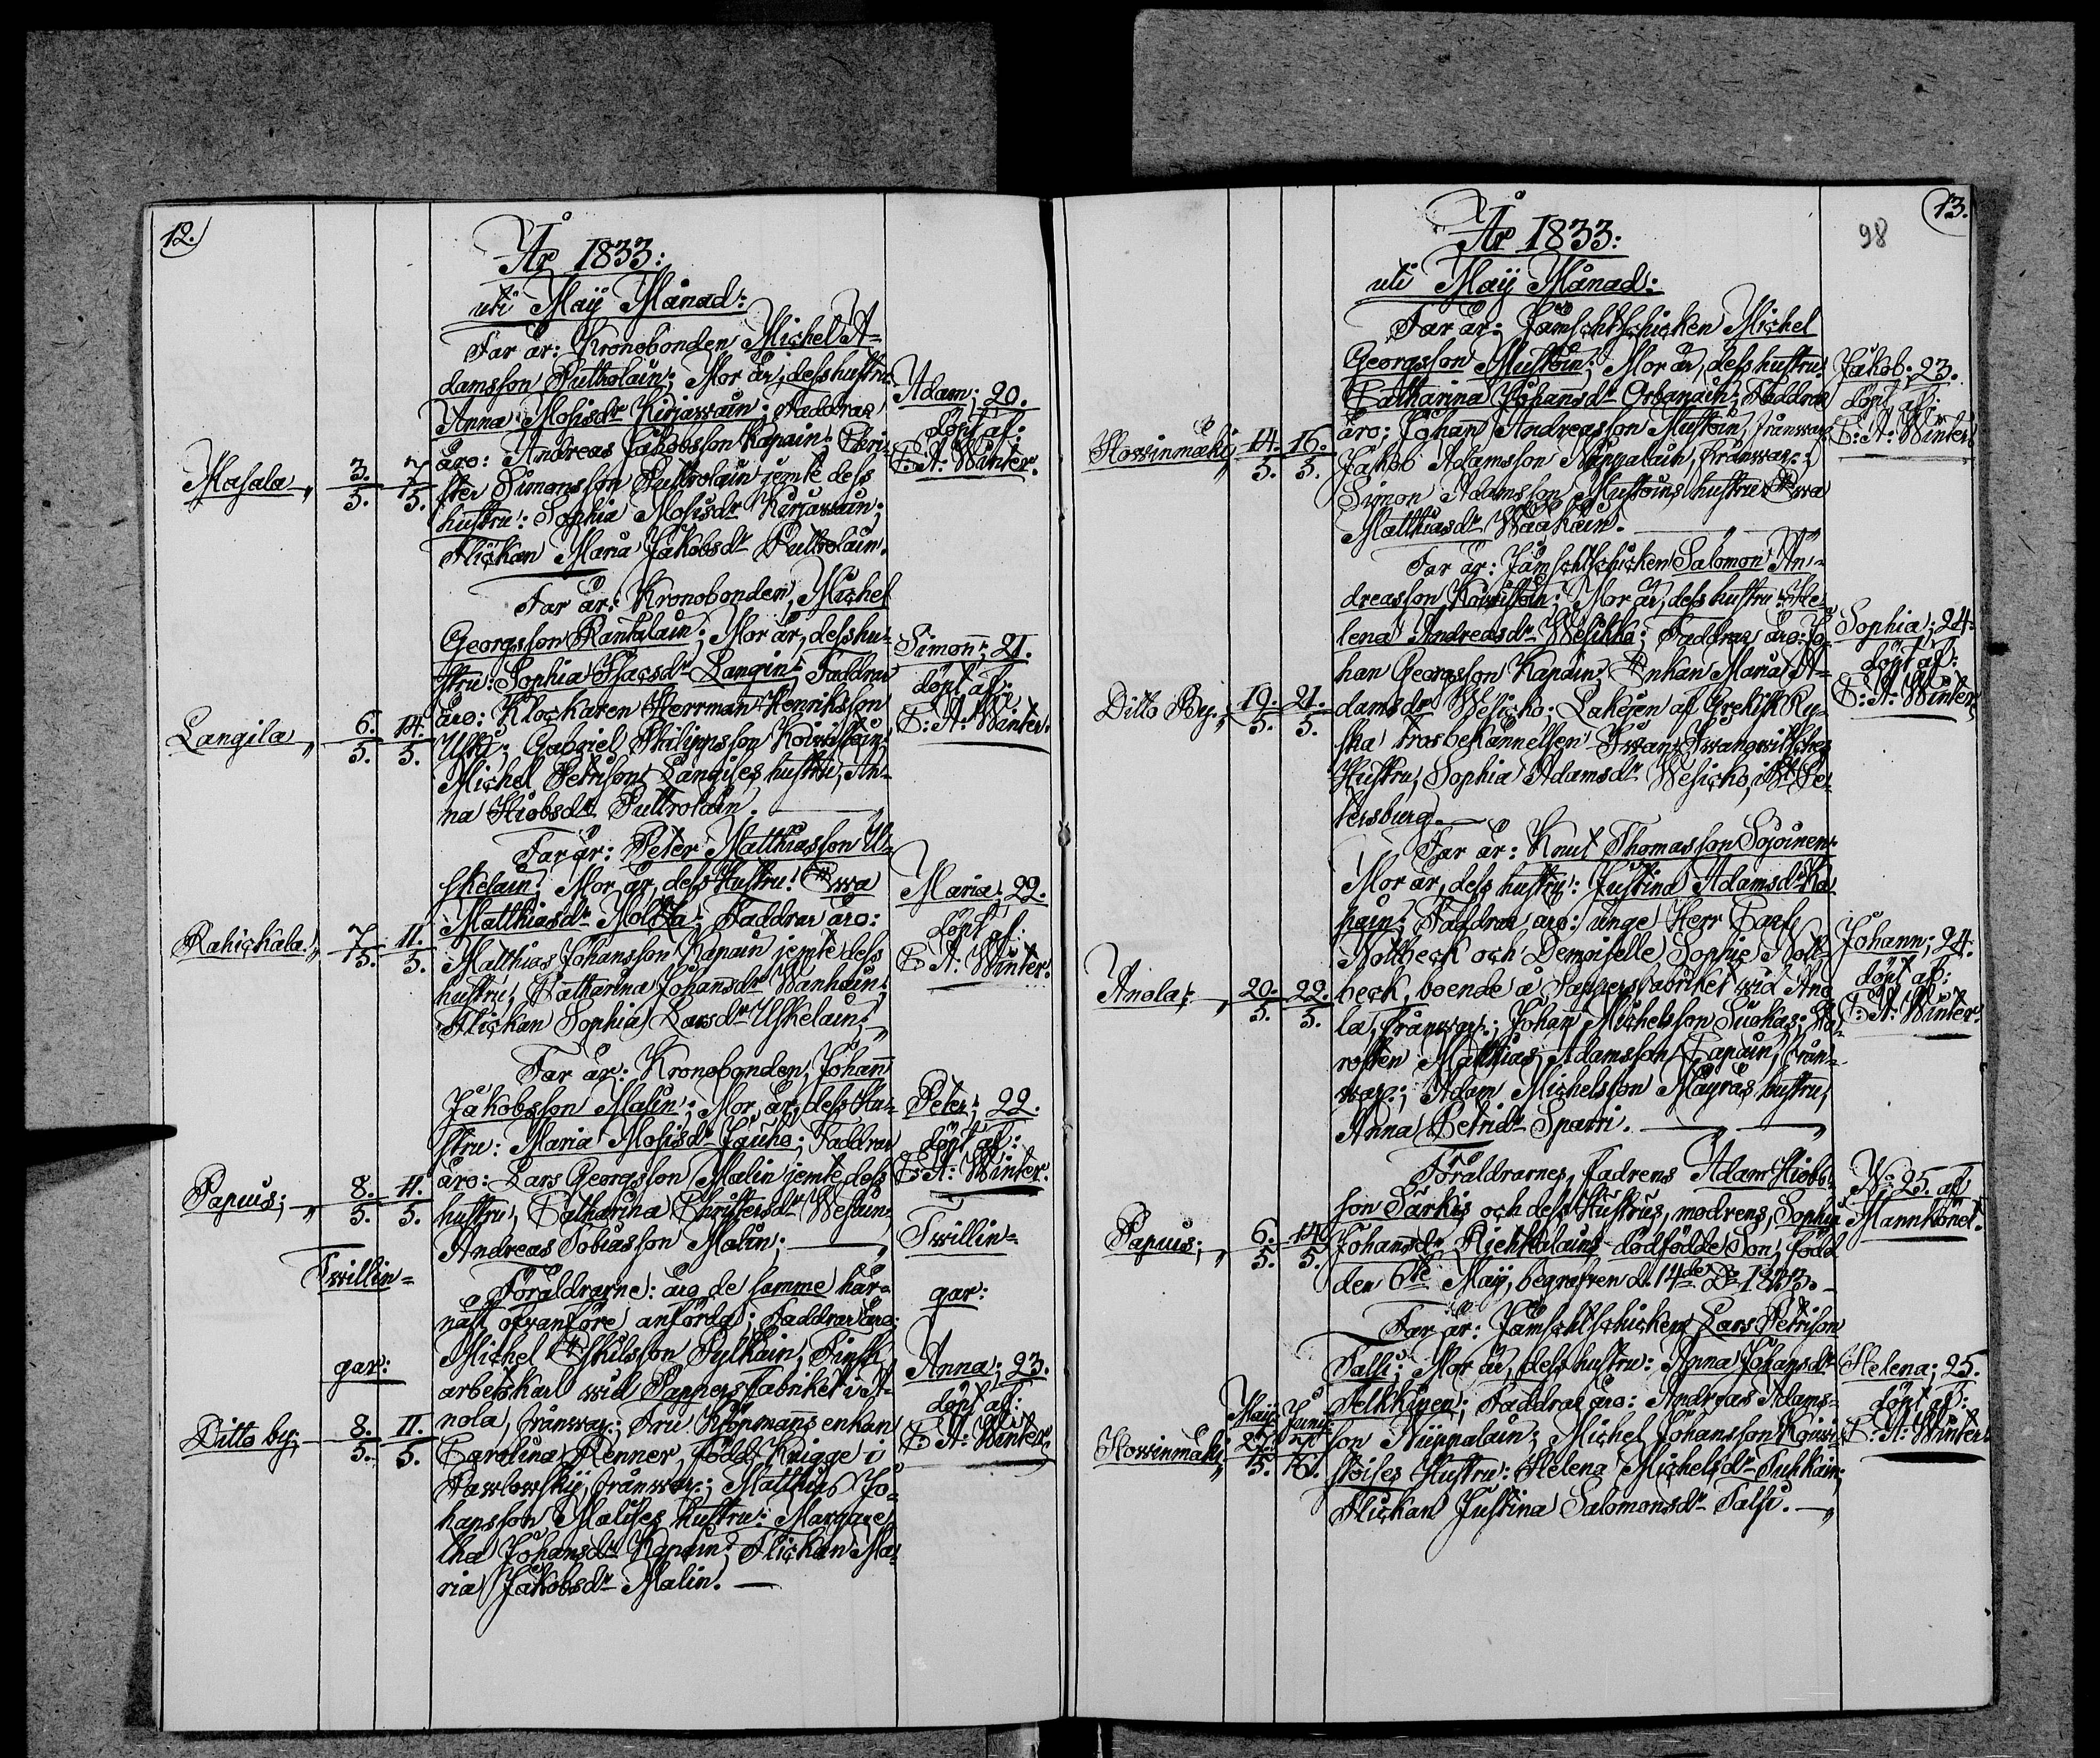 12.
År 1833:
uti Maij Månad:
Far är: Kronobonden Michel A-
damsson Pultrolain; Mor är, dess hustru
Anna Mosisdr Kirjawain; Faddrar
äro: Andreas Jakobsson Kapain; Chri-
ster Simonsson Pultrolain jemte dess
hustru: Sophia Mosisdr Kirjawain;
Flickan Maria Jakobsdr Pultrolain.
Masala 3. 5. 7. 5.
Adam; 20.
döpt af:
C: A: Winter.
Far är: Kronobonden, Michel
Georgsson Rantalain; Mor är, dess hu-
stru: Sophia Isacsdr Langin; Faddrar
äro: Klockaren Herrman Henriksson
Gabriel Philippsson Koivistoin;
Michel Petrison Langises hustru, An-
na Hiobsdr Pultrolain.
Langila 6. 5. 14. 5.
Simon; 21.
döpt af:
C: A: Winter.
Far är: Peter Matthiasson U-
skelain; Mor är, dess Hustru: Ewa
Matthiasdr Faddrar äro:
Matthias Johansson Kapain jemte dess
hustru, Catharina Johansdr Wanhain;
Flickan Sophia Larsdr Uskelain;
Rahickala. 7. 5. 11. 5.
Maria; 22.
döpt af:
C: A: Winter.
Far är: Kronobonden, Johan
Jakobsson Malin; Mor är, dess Hu-
stru: Maria Mosisdr Jauho; Faddrar
äro: Lars Georgsson Malin jemte dess
hustru, Catharina Christersdr Wesain;
Andreas Tobiasson Malin;
Papuis; 8. 5. 11. 5.
Peter; 22.
döpt af:
C: A: Winter.
Twillin= Twillin=
gar: gar:
Föräldrarne: äro de samme här-
näst ofvanföre anförda; Faddrar äro:
Michel Eskilsson Pylkäin, Finsk
arbetskarl wid Pappersfabriket i A-
nola, frånvar.; Fru Köpmans enkan
Carolina Renner, född Knigge i
Pawlowskij, frånvar.; Matthias Jo-
hansson Malises hustru: Margare-
tha Johansdr Kapain; Flickan Ma-
ria Jakobsdr Malin.
Ditto by; 8. 5. 11. 5.
Anna; 23.
döpt af:
C: A: Winter.
13.
98
År 1833:
uti Maij Månad:
Far är: Jämschtschicken Michel
Georgsson Mustoin; Mor är, dess hustru:
Catharina Johansdr Orbanain; Faddrar
äro; Johan Andreasson Mustoin, frånvar.
Jakob Adamsson Nuppalain, frånvar.;
Simon Adamsson Mustoins hustru Ewa
Matthiasdr Wääkäin.
Howinmäki 14. 5. 16. 5.
Jakob; 23.
döpt af:
C: A: Winter.
Far är: Jämschtschicken Salomon An-
dreasson Koivistoin; Mor är, dess hustru: He-
lena Andreasdr Wesikko; Faddrar äro: Jo-
han Georgsson Kapain; Enkan Maria A-
damsdr Wesicko; Lakejen af Grekisk Ry-
ska trosbekännelsen Iwan Iwanowitsches
Hustru, Sophia Adamsdr Wesicko, i St. Pe-
tersburg.
Ditto By. 19. 5. 21. 5.
Sophia; 24.
döpt af:
C: A: Winter.
Far är: Knut Thomasson Soivinen;
Mor är, dess hustru: Justina Adamsdr Ka-
pain; Faddrar äro: unge Herr Carl
Nottbeck och Demoiselle Sophie Nott-
beck, boende å Pappersfabriket wid Ano-
la, frånvar.; Johan Michelsson Suokas; Sta-
rosten Matthias Adamsson Capain, från-
var.; Adam Michelsson Mäyräs hustru,
Anna Petridr Sparri.
Anola; 20. 5. 22. 5.
Johann; 24.
döpt af:
C: A: Winter.
Föräldrarnes, fadrens Adam Hiobs-
son Särkis och dess Hustrus, modrens, Sophia
Johansdr dödfödde Son, född
den 6te Maij, begrafven d. 14de 1833.
Papuis; 6. 5. 14. 5.
No 25. af
Mannkönet.
Far är: Jämschtschicken Lars Petrison
Talsi; Mor är, dess hustru: Anna Johansdr
Pelkkinen; Faddrar äro: Andreas Adams-
son Nuppalain; Michel Johansson Koivi-
stoises Hustru: Helena Michelsdr Tukkain;
Flickan Justina Salomonsdr Talsi.
Howinmäki Maij 27. 5. Junij
Helena; 25.
döpt af:
C: A: Winter.